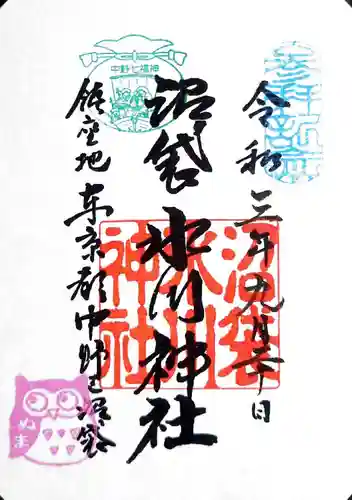 参拝記念
令和三年九月日
中野七福神
沼袋氷川神社
沼袋
氷川
神社
鎮座地 東京都中野区沼袋
ぬま